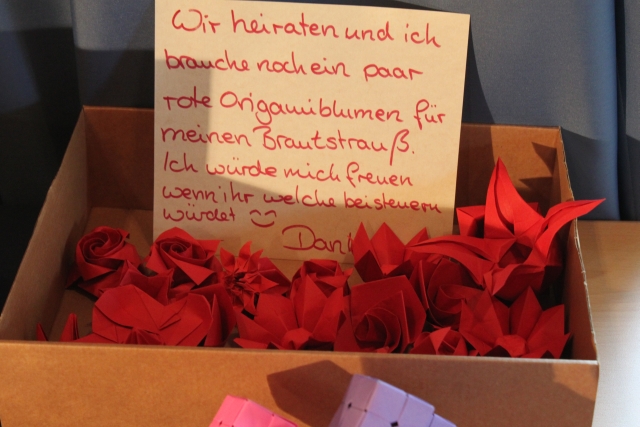 Wir heiraten und ich
brauche noch ein paar
rote Origamiblumen für
meinen Brautstrauß.
Ich würde mich freuen
wenn ihr welche beisteuern
würdet